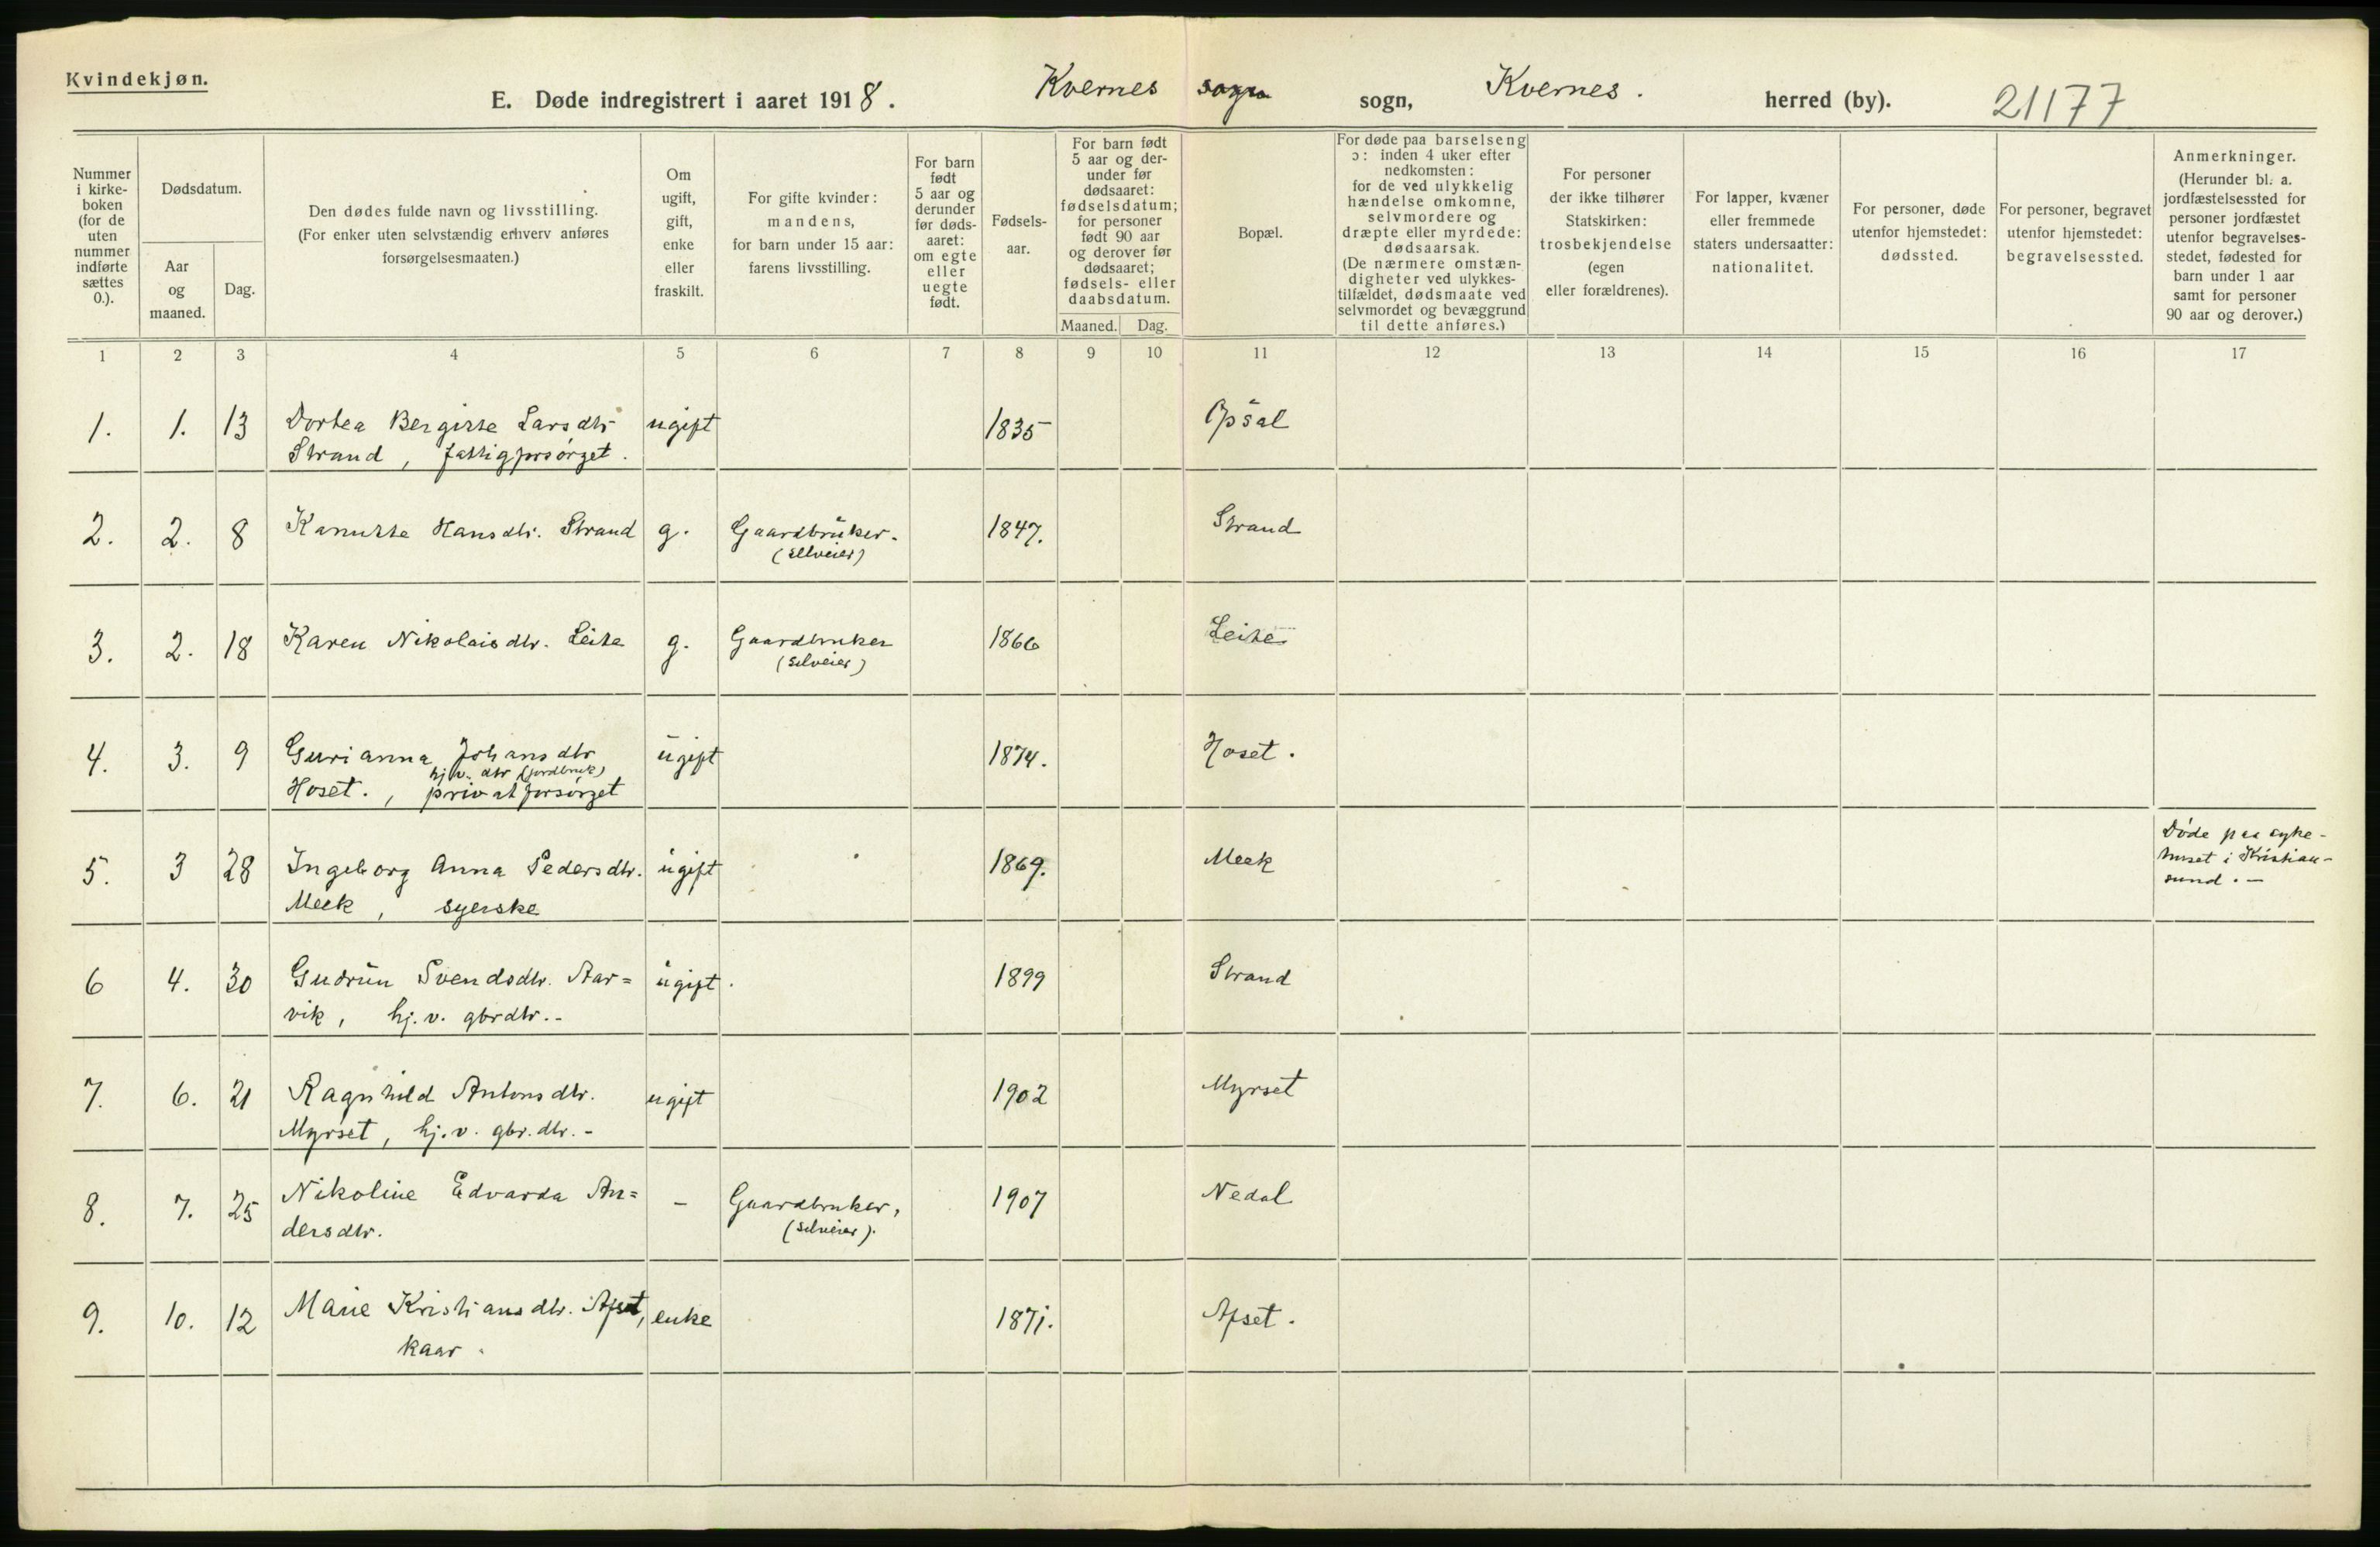 Kvindekjøn.
E. Døde indregistrert i aaret 1918. Kvernes sogn sogn, Kvernes. herred (by). 21177
Nummer i kirkeboken (for de uten nummer indførte sættes 0.).
Dødsdatum.
Aar og maaned.
Dag.
Den dødes fulde navn og livsstilling.
(For enker uten selvstændig erhverv anføres
forsørgelsesmaaten.)
Om ugift, gift, enke eller fraskilt.
For gifte kvinder:
mandens,
for barn under 15 aar:
farens livsstilling.
For barn født 5 aar og derunder før dødsaaret: om egte eller uegte født.
Fødselsaar.
For barn født 5 aar og derunder før dødsaaret: fødselsdatum; for personer født 90 aar og derover før dødsaaret; fødsels- eller daabsdatum.
Maaned. Dag.
Bopæl.
For døde paa barselseng
ɔ: inden 4 uker efter
nedkomsten:
for de ved ulykkelig
hændelse omkomne,
selvmordere og
dræpte eller myrdede:
dødsaarsak.
(De nærmere omstæn-
digheter ved ulykkes-
tilfældet, dødsmaate ved
selvmordet og bevæggrund
til dette anføres.)
For personer
der ikke tilhører
Statskirken:
trosbekjendelse
(egen
eller forældrenes).
For lapper, kvæner
eller fremmede
staters undersaatter:
nationalitet.
For personer, døde
utenfor hjemstedet:
dødssted.
For personer, begravet
utenfor hjemstedet:
begravelsessted.
Anmerkninger.
(Herunder bl. a.
jordfæstelsessted for
personer jordfæstet
utenfor begravelses-
stedet, fødested for
barn under 1 aar
samt for personer
90 aar og derover.)
1 2 3 4 5 6 7 8 9 10 11 12 13 14 15 16 17
1. 1. 13 Dortea Bergitte Larsdtr ugift 1835 Opsal
Strand, fattigforsørget.
2. 2. 8 Kanutte Hansdtr. Strand g. Gaardbruker. 1847. Strand
(selveier)
3. 2. 18 Karen Nikolaisdtr. Leite g. Gaardbruker 1866 Leite
(selveier)
4. 3. 9 Gurianna Johansdtr ugift 1874. Hoset.
hj.v. dtr (jordbruk)
Hoset., privat forsørget
5. 3 28 Ingeborg Anna Pedersdtr. ugift 1869. Meek Døde paa syke-
huset i Kristian-
sund. -
Meek, syerske
6 4. 30 Gudrun Svendsdtr. Aar= ugift. 1899 Strand
vik, hj.v. gbrdtr. -
7. 6. 21 Ragnhild Antonsdtr. ugift 1902 Myrset
Myrset, hj.v. gbr.dtr. -
8. 7. 25 Nikoline Edvarda An= - Gaardbruker, 1907 Nedal
dersdtr. (selveier).
9. 10. 12 Marie Kristiansdtr. Apset, enke 1871. Apset.
kaar.